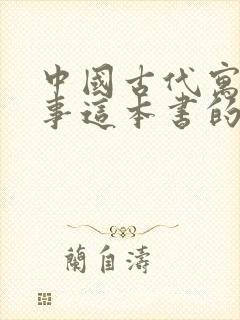 中國古代寓
事這本書的
蘭自濤